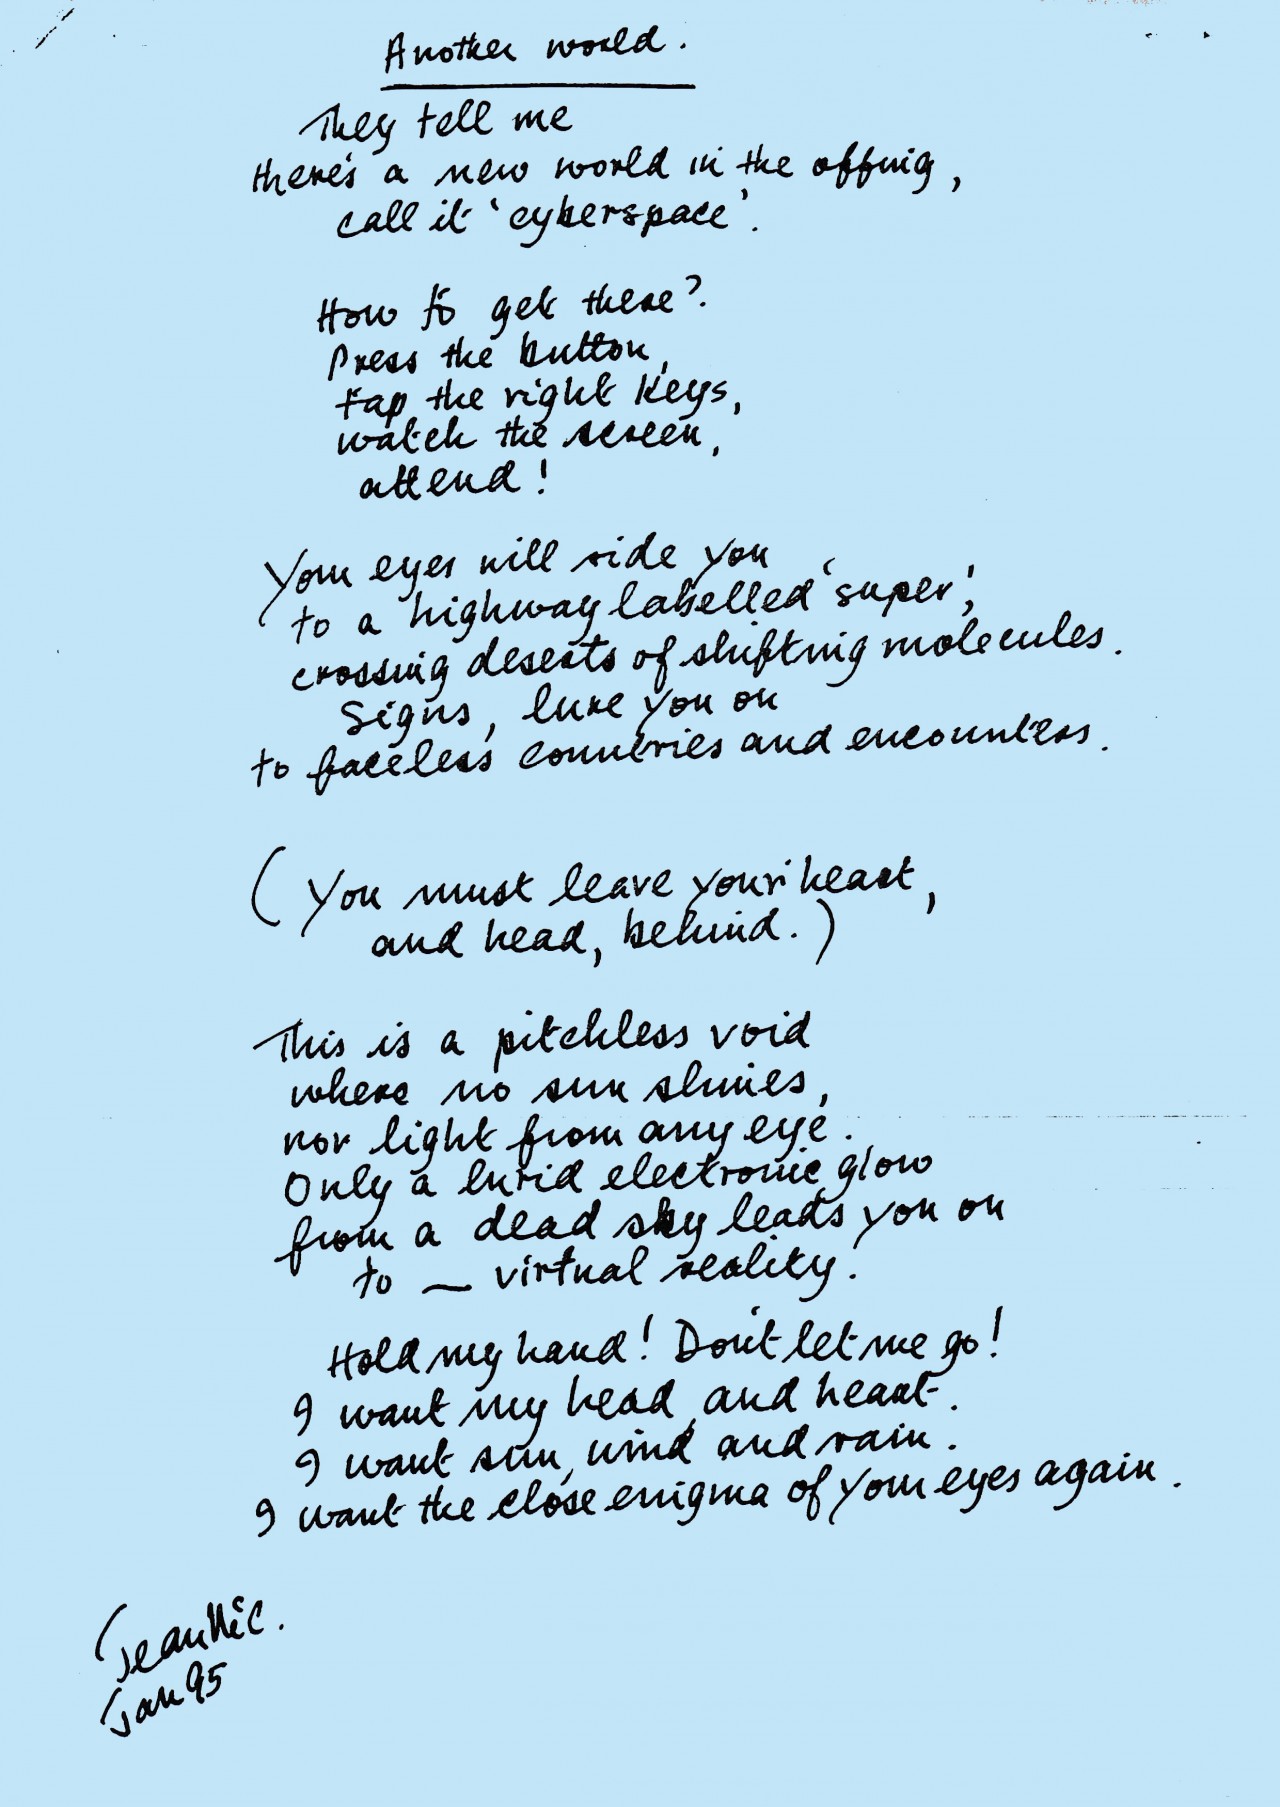 Another world.
They tell me
there's a new world in the offing,
call it 'cyberspace'.
How to get there?
Press the button,
tap the right keys,
watch the screen,
attend!
Your eyes will ride you
to a highway labelled 'super',
crossing deserts of shifting molecules.
Signs, lure you on
to faceless countries and encounters.
(You must leave your heart,
and head, behind.)
This is a pitchless void
where no sun shines,
nor light from any eye.
Only a lurid electronic glow
from a dead sky leads you on
to — virtual reality.
Hold my hand! Don't let me go!
I want my head, and heart.
I want sun, wind and rain.
I want the close enigma of your eyes again.
Jan 95